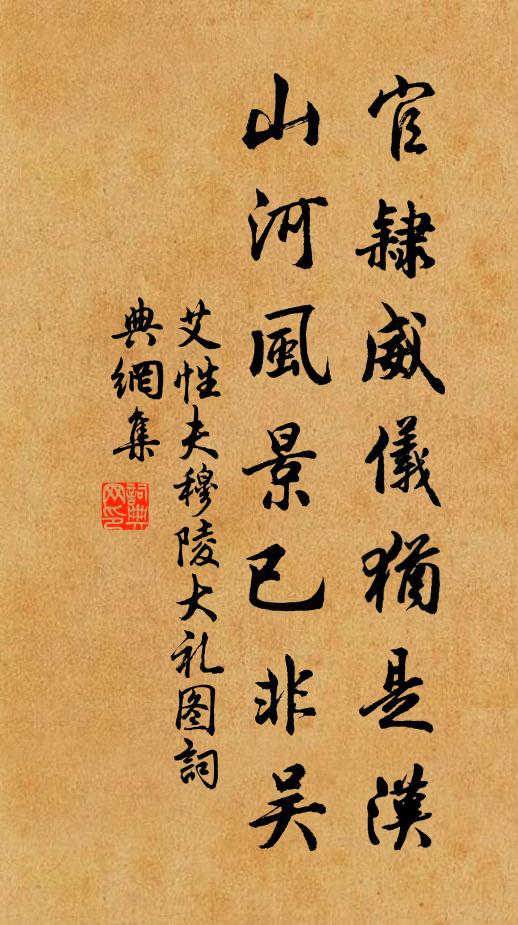 官隸威儀猶是漢
山河風景已非吴
艾性夫穆陵大礼图詞
典網集
詞典
网印